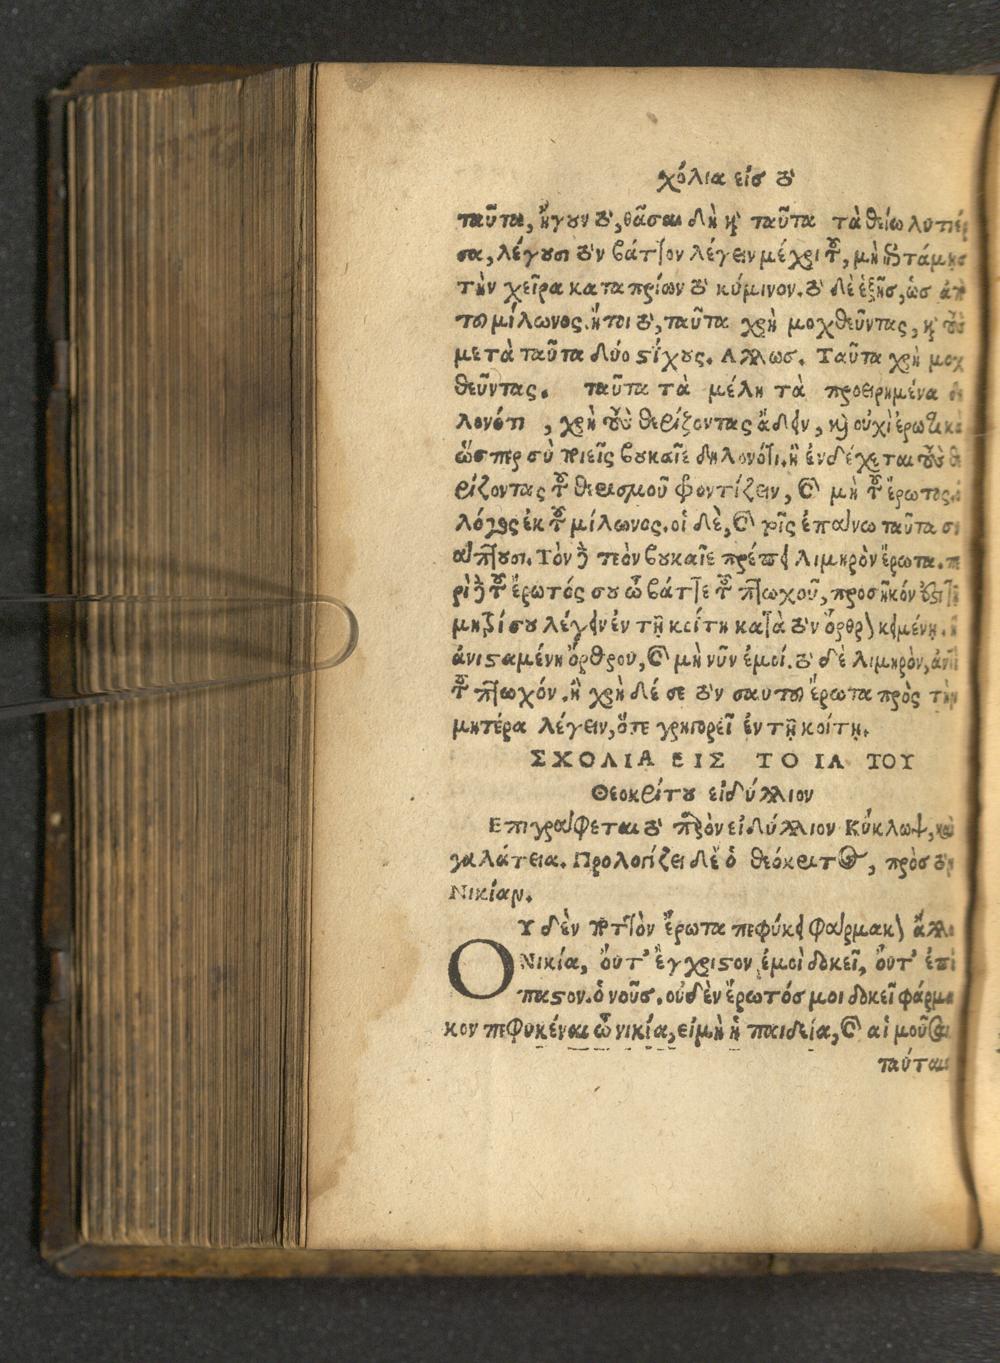 χόλια εἰσ τὸ
ταῦτα, ἤγουν τὸ, θᾶσαι δὴ καὶ ταῦτα τὰ θείω λυτιέρ
σα, λέγουσι τὸν βάττον λέγειν μέχρι τοῦ, μὴ
τὴν χεῖρα καταπρίων τὸ κύμινον. τὸ δὲ ἑξῆσ, ὡσ ἀπ
το μίλωνος. ἤτοι τὸ, ταῦτα χρὴ μοχθεῦντας, καὶ τοὺσ
μετὰ ταῦτα δύο ϛίχους. Αλλωσ. Ταῦτα χρὴ μοχ
θεῦντας. ταῦτα τὰ μέλη τὰ προειρημένα δη
λονότι, χρὴ τοὺσ θερίζοντας ἄδειν, καὶ οὐχὶ ἐρωτικὰ
ὥσπερ σὺ ποιεῖς βουκαῖε δηλονότι. ἢ ἐνδέχεται τοὺσ θε
ρίζοντας τοῦ θερισμοῦ φροντίζειν, καὶ μὴ τοῦ ἔρωτος.
λόγος ἐκ τοῦ μίλωνος. οἱ δὲ, καὶ τρῖς ἐπαίνω ταῦτα
. Τὸν δὲ τεὸν βουκαῖε πρέπει λιμηρὸν ἔρωτα. πε
ρὶ δὲ τοῦ ἔρωτόσ σου ὦ βάττε τοῦ πτωχοῦ, προσῆκόν ἐϛι τῆ
μητρί σου λέγειν ἐν τῇ κοίτη κατὰ τὸν ὄρθρον κειμένῃ. ἢ
ἀνιϛαμένη ὄρθρου, καὶ μὴ νῦν ἐμοί. τὸ δὲ λιμηρὸν, ἀντὶ
τοῦ πτωχόν. ἢ χρὴ δέ σε τὸν σαυτοῦ ἔρωτα πρὸς τὴν
μητέρα λέγειν, ὅτε γρηγορεῖ ἐν τῇ κοίτῃ.
ΣΧΟΛΙΑ ΕΙΣ ΤΟ ΙΑ ΤΟΥ
Θεοκρίτου εἰδύλλιον
Επιγράφεται τὸ παρὸν εἰδύλλιον Κύκλωψ, καὶ
γαλάτεια. Προλογίζει δὲ ὁ θεόκριτος, πρὸσ τὸν
Νικίαν.
Ο Υ δὲν ποττὸν ἔρωτα πεφύκει φάρμακον ἄλλο
Νικία, οὔτ' ἔγχριϛον ἐμοὶ δοκεῖ, οὔτ' ἐπί
παϛον. ὁ νοῦσ. οὐδὲν ἔρωτόσ μοι δοκεῖ φάρμα
κον πεφυκέναι ὦ νικία, εἰ μὴ ἡ παιδεία, καὶ αἱ μοῦσαι
ταύται